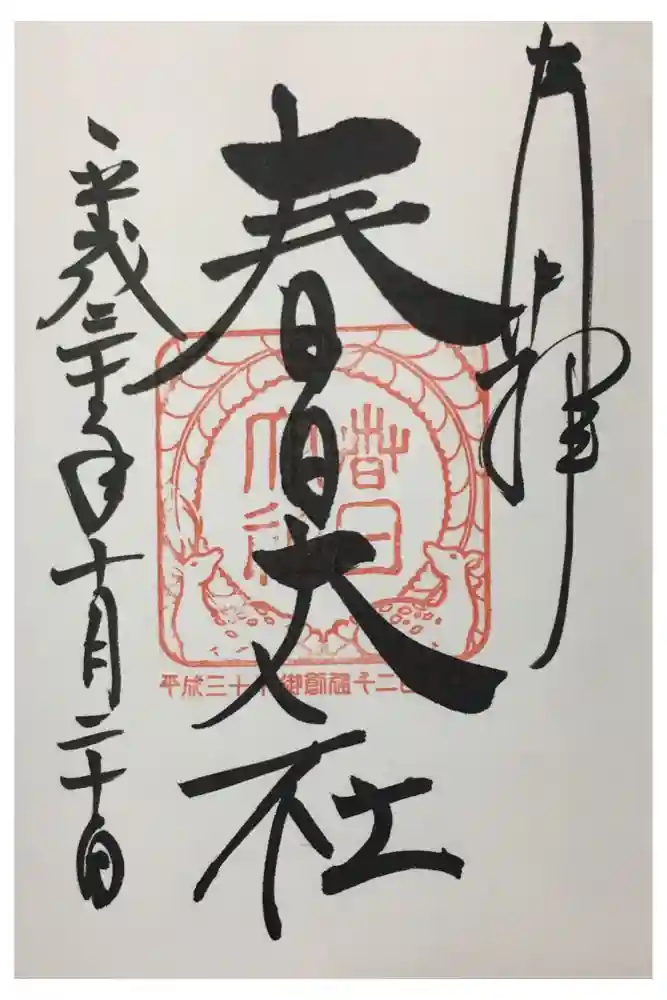 奉拝
春日大社
平成三十年十月二十日
春日
大社
平成三十年御創建千二百